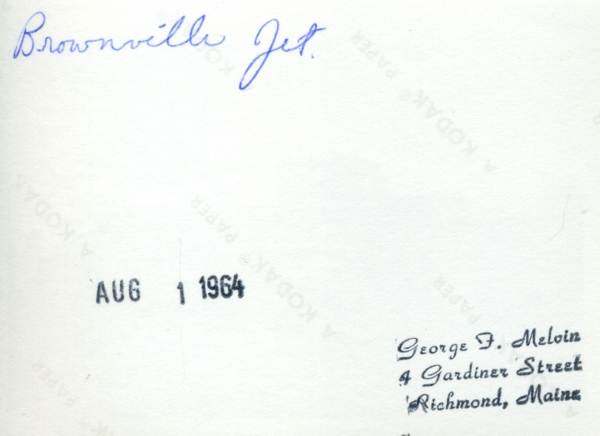 Brownville Jct.
A KODAK® PAPER
A KODAK
A KODAK® PAPER
PAPER
AUG 1 1964
George F. Melvin
4 Gardiner Street
Richmond, Maine